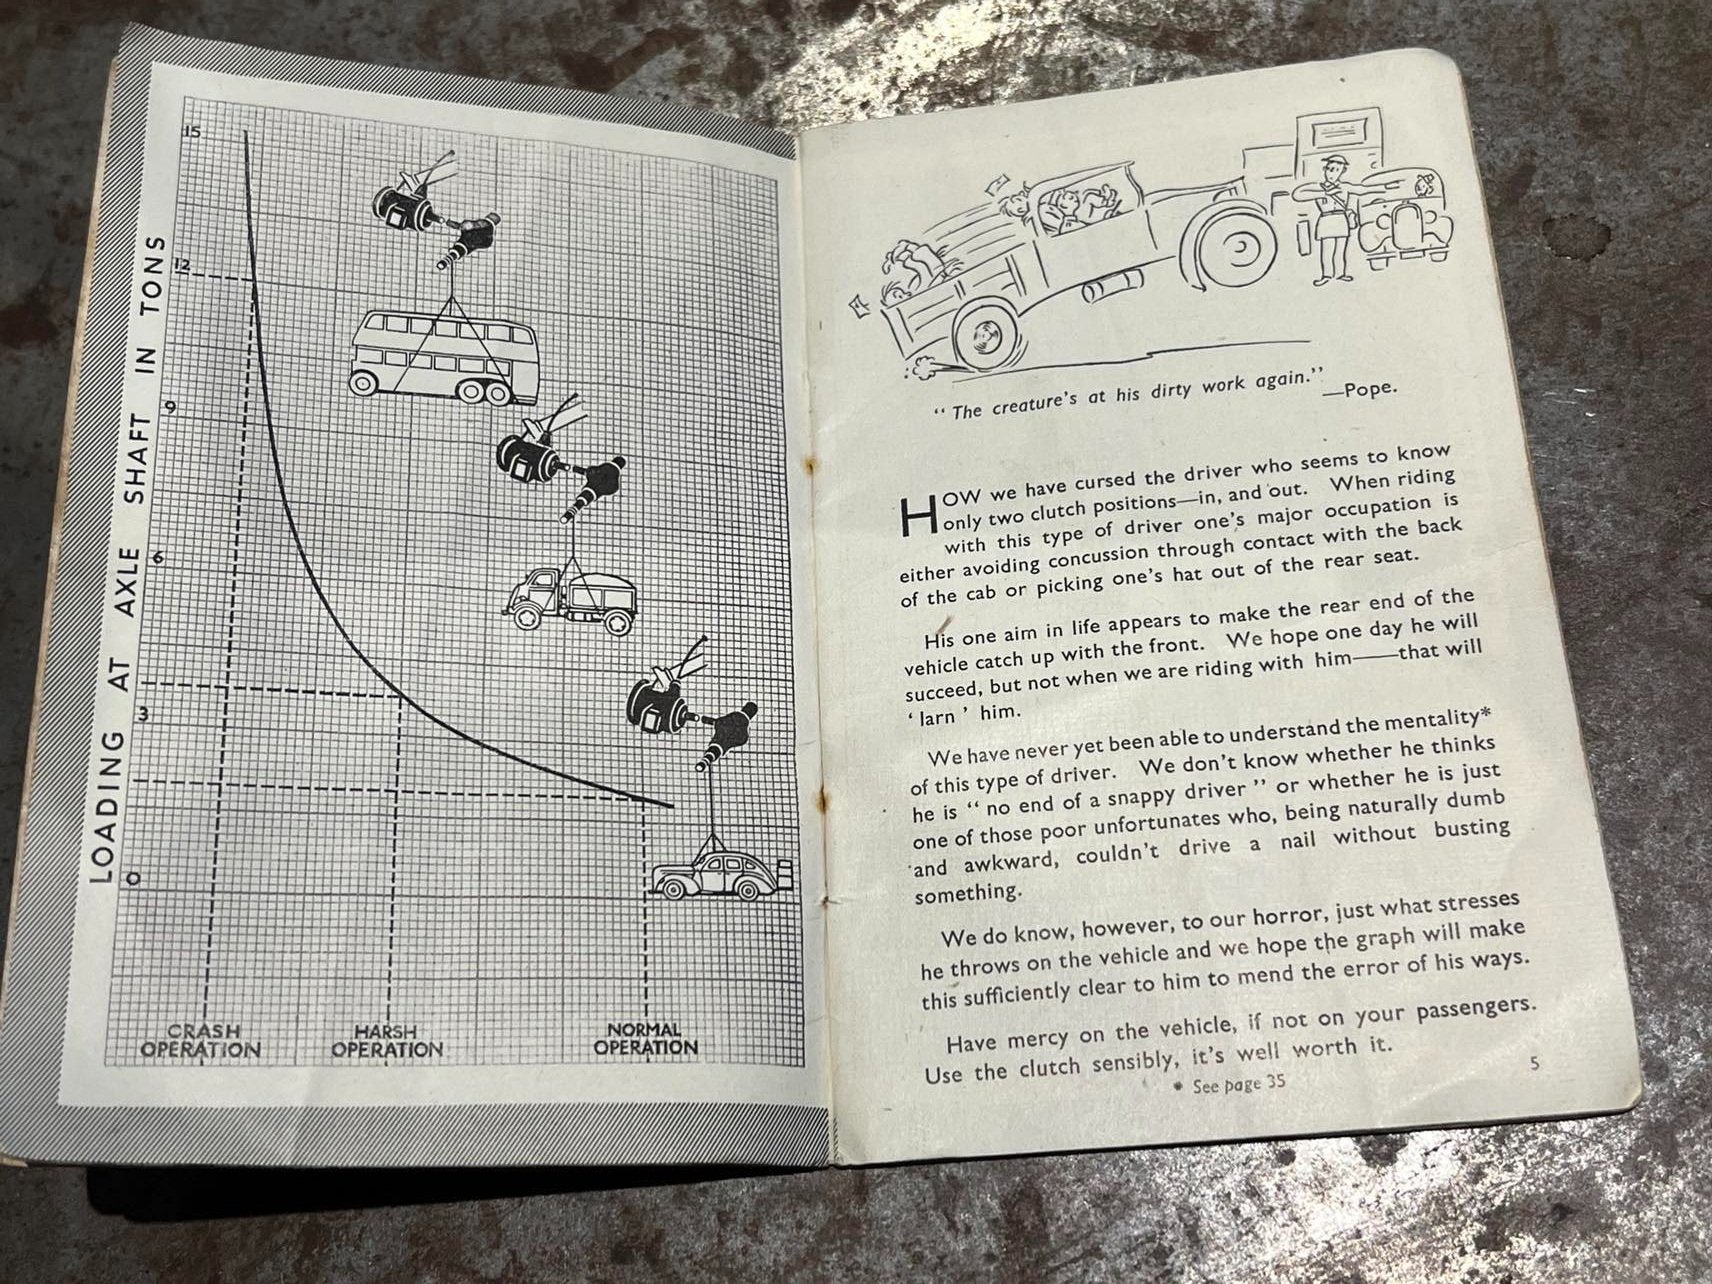 LOADING AT AXLE SHAFT IN TONS
15
12
9
6
3
0
CRASH
OPERATION
HARSH
OPERATION
NORMAL
OPERATION
“ The creature's at his dirty work again.”
—Pope.
HOW we have cursed the driver who seems to know
only two clutch positions—in, and out. When riding
with this type of driver one's major occupation is
either avoiding concussion through contact with the back
of the cab or picking one's hat out of the rear seat.
His one aim in life appears to make the rear end of the
vehicle catch up with the front. We hope one day he will
succeed, but not when we are riding with him——that will
‘ larn ’ him.
We have never yet been able to understand the mentality*
of this type of driver. We don't know whether he thinks
he is “ no end of a snappy driver ” or whether he is just
one of those poor unfortunates who, being naturally dumb
and awkward, couldn't drive a nail without busting
something.
We do know, however, to our horror, just what stresses
he throws on the vehicle and we hope the graph will make
this sufficiently clear to him to mend the error of his ways.
Have mercy on the vehicle, if not on your passengers.
Use the clutch sensibly, it's well worth it.
* See page 35
5